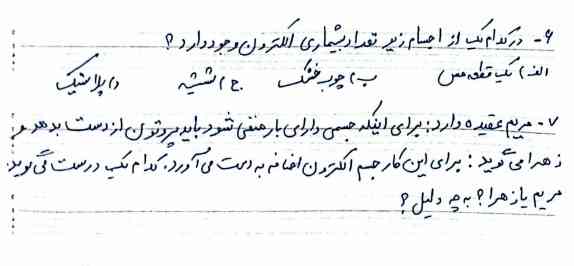 ۶- در کدام یک از اجسام زیر تعداد بیشماری الکترون وجود دارد ؟
الف) یک قطعه مس ب) چوب خشک ج) شیشه د) پلاستیک
۷- مریم عقیده دارد : برای اینکه جسمی دارای بار منفی شود باید پروتون از دست بدهد و
زهرا می گوید : برای این کار جسم الکترون اضافه به دست می آورد . کدام یک درست می گوید
مریم یا زهرا ؟ به چه دلیل ؟